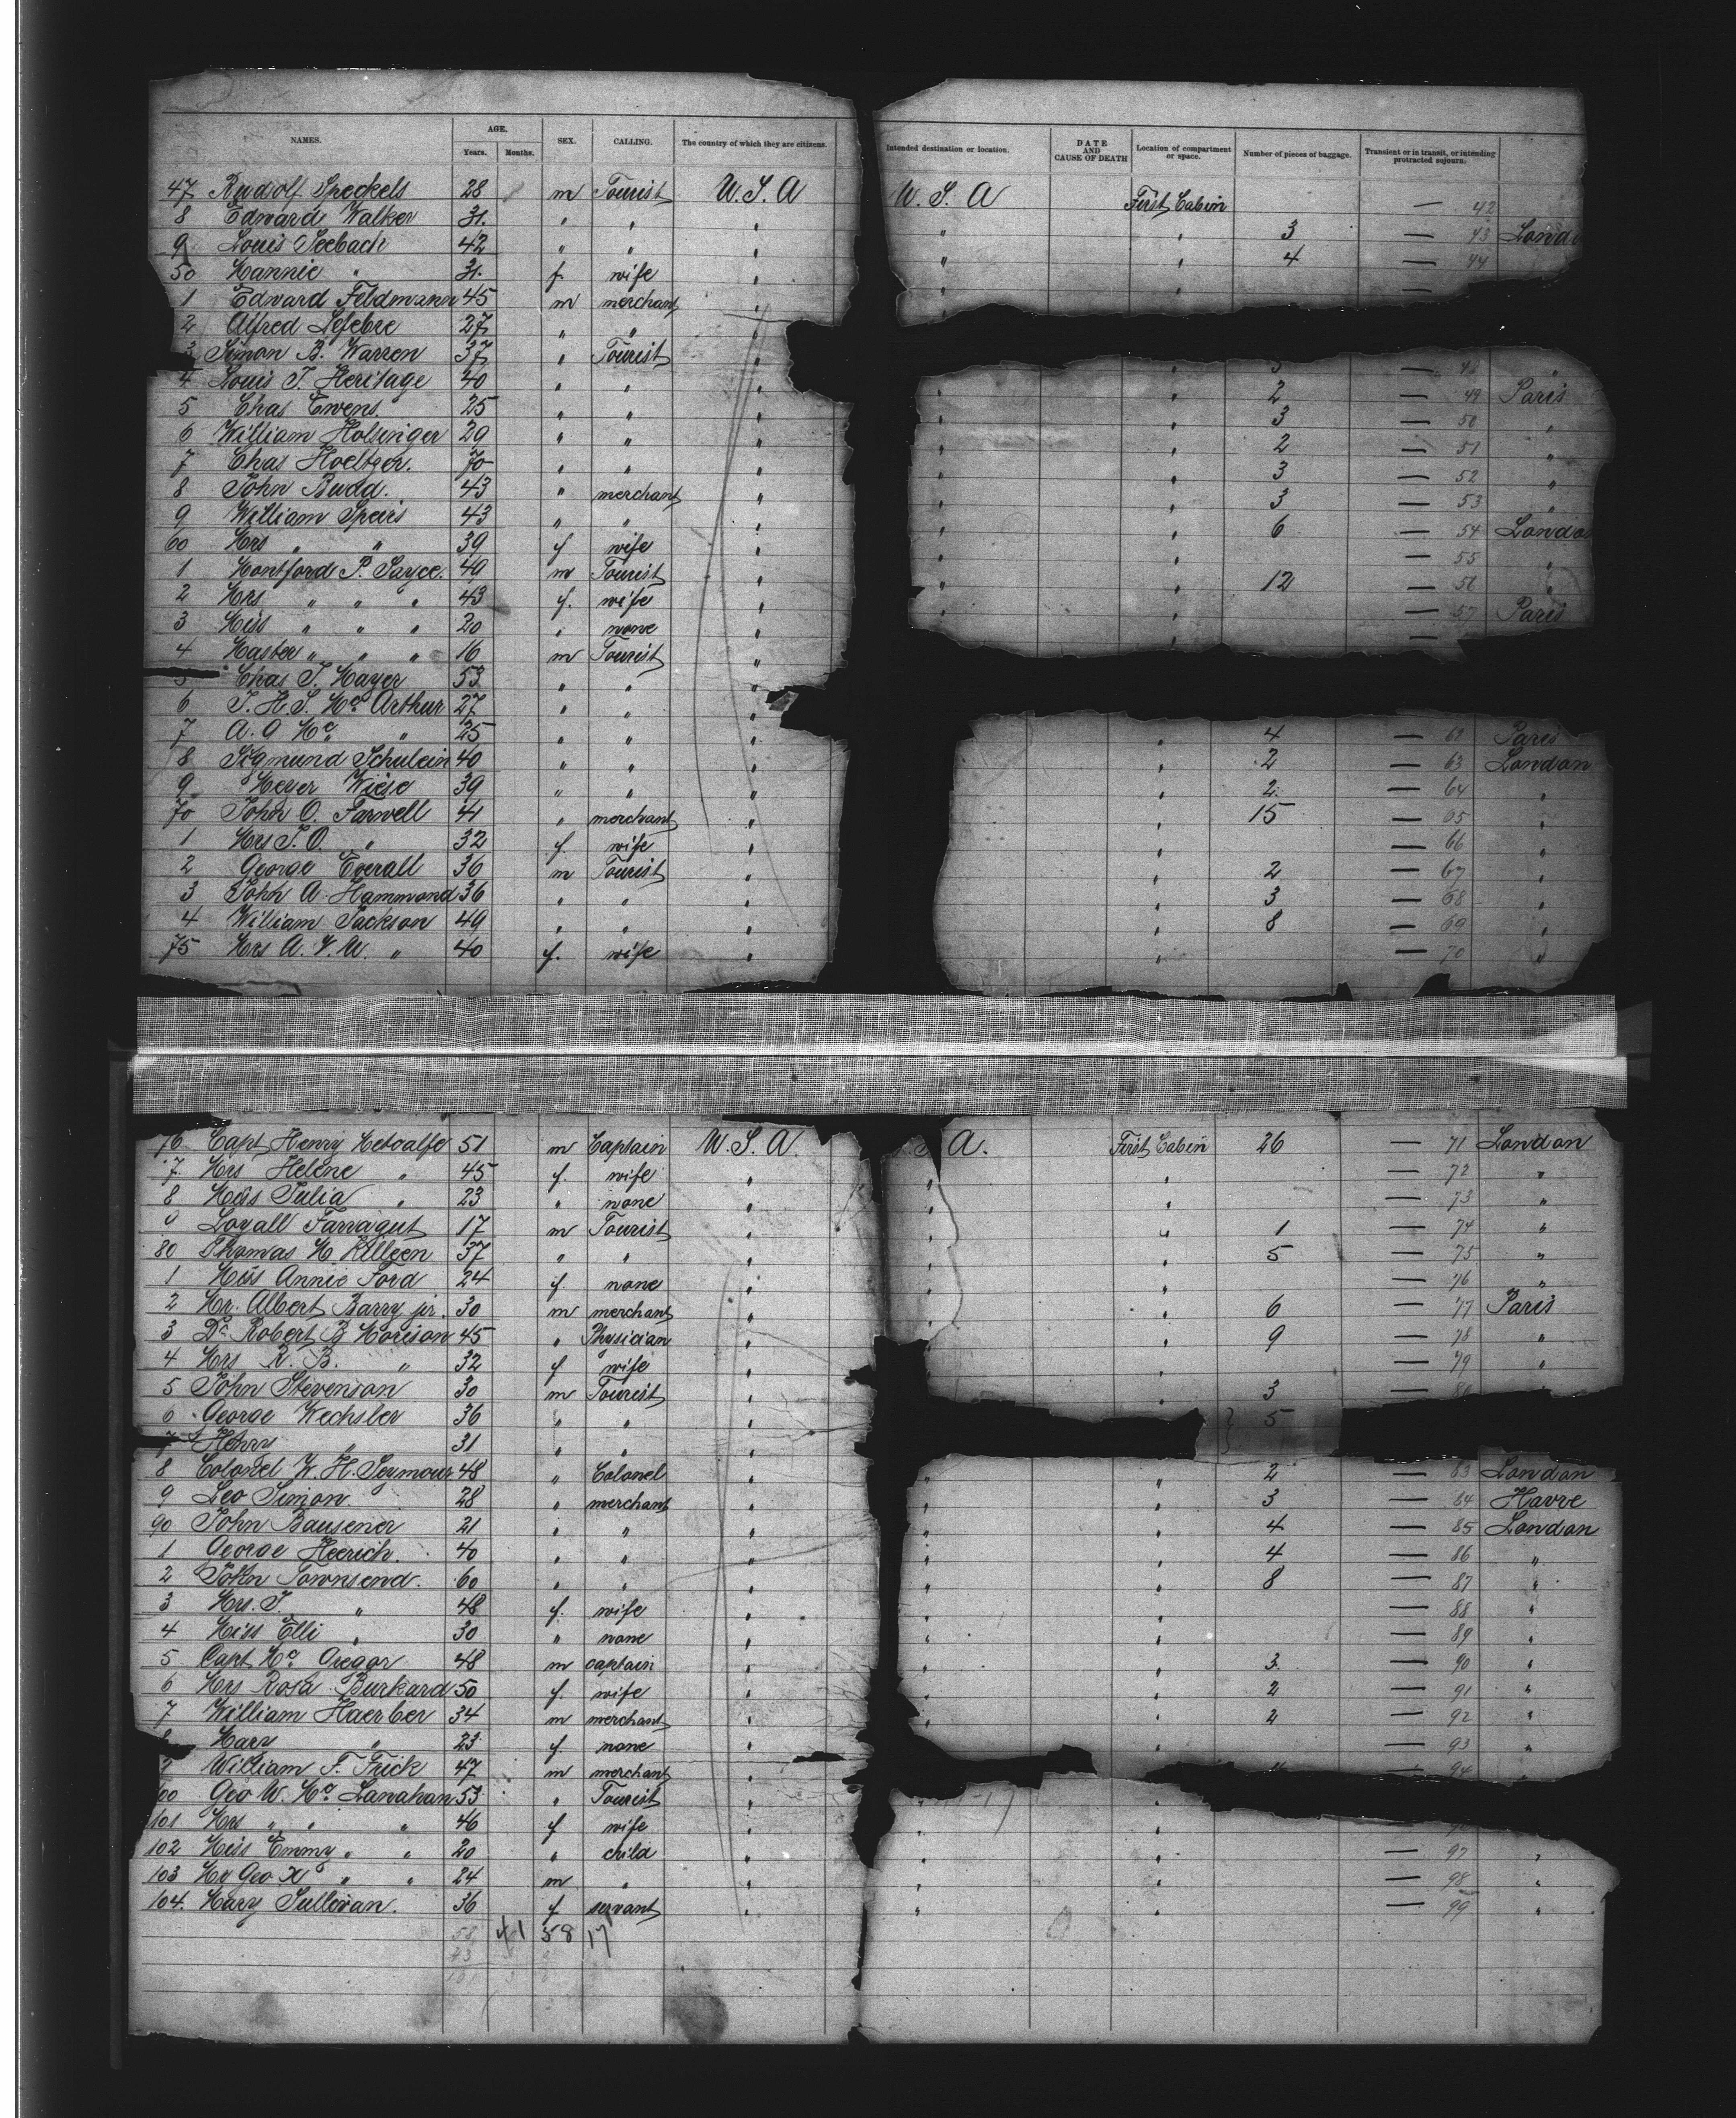 NAMES. AGE. Years. Months. SEX. CALLING. The country of which they are citizens. Intended destination or location. DATE AND CAUSE OF DEATH Location of compartment or space. Number of pieces of baggage. Transient or in transit, or intending protracted sojourn.
47 Rudolf Spreckels 28 m Tourist U.S.A U.S.A First Cabin — 42
8 Edward Walker 31. " " " " " 3 — 43 Londo
9 Louis Seebach 42 " " " " " 4 — 44
50 Hannie " 31. f. wife " " " —
1 Edward Feldmann 45 m merchant " "
2 Alfred Lefebre 27 " " "
3 Simon B. Warren 37 " Tourist "
4 Louis T. Heritage 40 " " " " — 48 "
5 Chas Ewens. 25 " " " " " 2 — 49 Paris
6 William Holsinger 29 " " " " " 3 — 50 "
7 Chas Hoeltger. 70 " " " " " 2 — 51 "
8 John Budd. 43 " merchant " " " 3 — 52 "
9 William Speirs 43 " " " " " 3 — 53 "
60 Mrs " " 39 f wife " " " 6 — 54 London
1 Montford P. Sayce. 49 m Tourist " " " — 55 "
2 Mrs " " " 43 f. wife " " " 12 — 56 "
3 Miss " " " 20 " none " " " — 57 Paris
4 Master " " " 16 m Tourist " " —
5 Chas T. Mayer 53 " " "
6 T. H. S. Mc Arthur 27 " " "
7 A. A Mc " 25 " " "
8 Sigmund Schulein 40 " " " " 4 — 62 Paris
9 Meyer Wiese 39 " " " " 2 — 63 London
70 John O. Farwell 41 " merchant " " 2. — 64 "
1 Mrs J. O. " 32 f. wife " " 15 — 65 "
2 George Everall 36 m Tourist " " — 66 "
3 John A. Hammond 36 " " " " 2 — 67 "
4 William Jackson 49 " " " " 3 — 68 "
75 Mrs A. V. W. " 40 f. wife " " 8 — 69 "
" — 70 "
76 Capt Henry Metcalfe 51 m Captain U.S.A. S. A. First Cabin 26 — 71 London
7 Mrs Helene " 45 f. wife " " " — 72 "
8 Miss Julia " 23 " none " " " — 73 "
9 Loyall Farragut 17 m Tourist " " " 1 — 74 "
80 Thomas M. Killeen 37 " " " " " 5 — 75 "
1 Miss Annie Ford 24 f. none " " " — 76 "
2 Mr. Albert Barry jr. 30 m merchant " " " 6 — 77 Paris
3 Dr. Robert B Morison 45 " Physician " " " 9 — 78 "
4 Mrs R. B. " 32 f wife " " " — 79 "
5 John Stevenson 30 m Tourist " " " 3 — 80 "
6 George Wechsler 36 " " " } 5
7 Henry " 31 " " "
8 Colonel W. H. Seymour 48 " Colonel " " " 2 — 83 London
9 Leo Simon. 28 " merchant " " " 3 — 84 Havre
90 John Bausener 21 " " " " " 4 — 85 London
1 George Heerich. 40 " " " " " 4 — 86 "
2 John Townsend. 60 " " " " " 8 — 87 "
3 Mrs. J. " 48 f. wife " " " — 88 "
4 Miss Elli " 30 " none " " " — 89 "
5 Capt Mc Gregor 48 m captain " " " 3. — 90 "
6 Mrs Rosa Burkard 50 f. wife " " " 2 — 91 "
7 William Haerber 34 m merchant " " " 2 — 92 "
8 Mary " 23 f. none " " — 93 "
9 William F. Frick 47 m merchant " — 94
100 Geo W. Mc Lanahan 53 " Tourist " "
101 Mrs " " " 46 f wife " " "
102 Miss Emmy " " 20 " child " " " — 97 "
103 Mr Geo X " " 24 m " " " " — 98 "
104. Mary Sullivan. 36 f servant " " " — 99 "
58 41 58 17
43
101